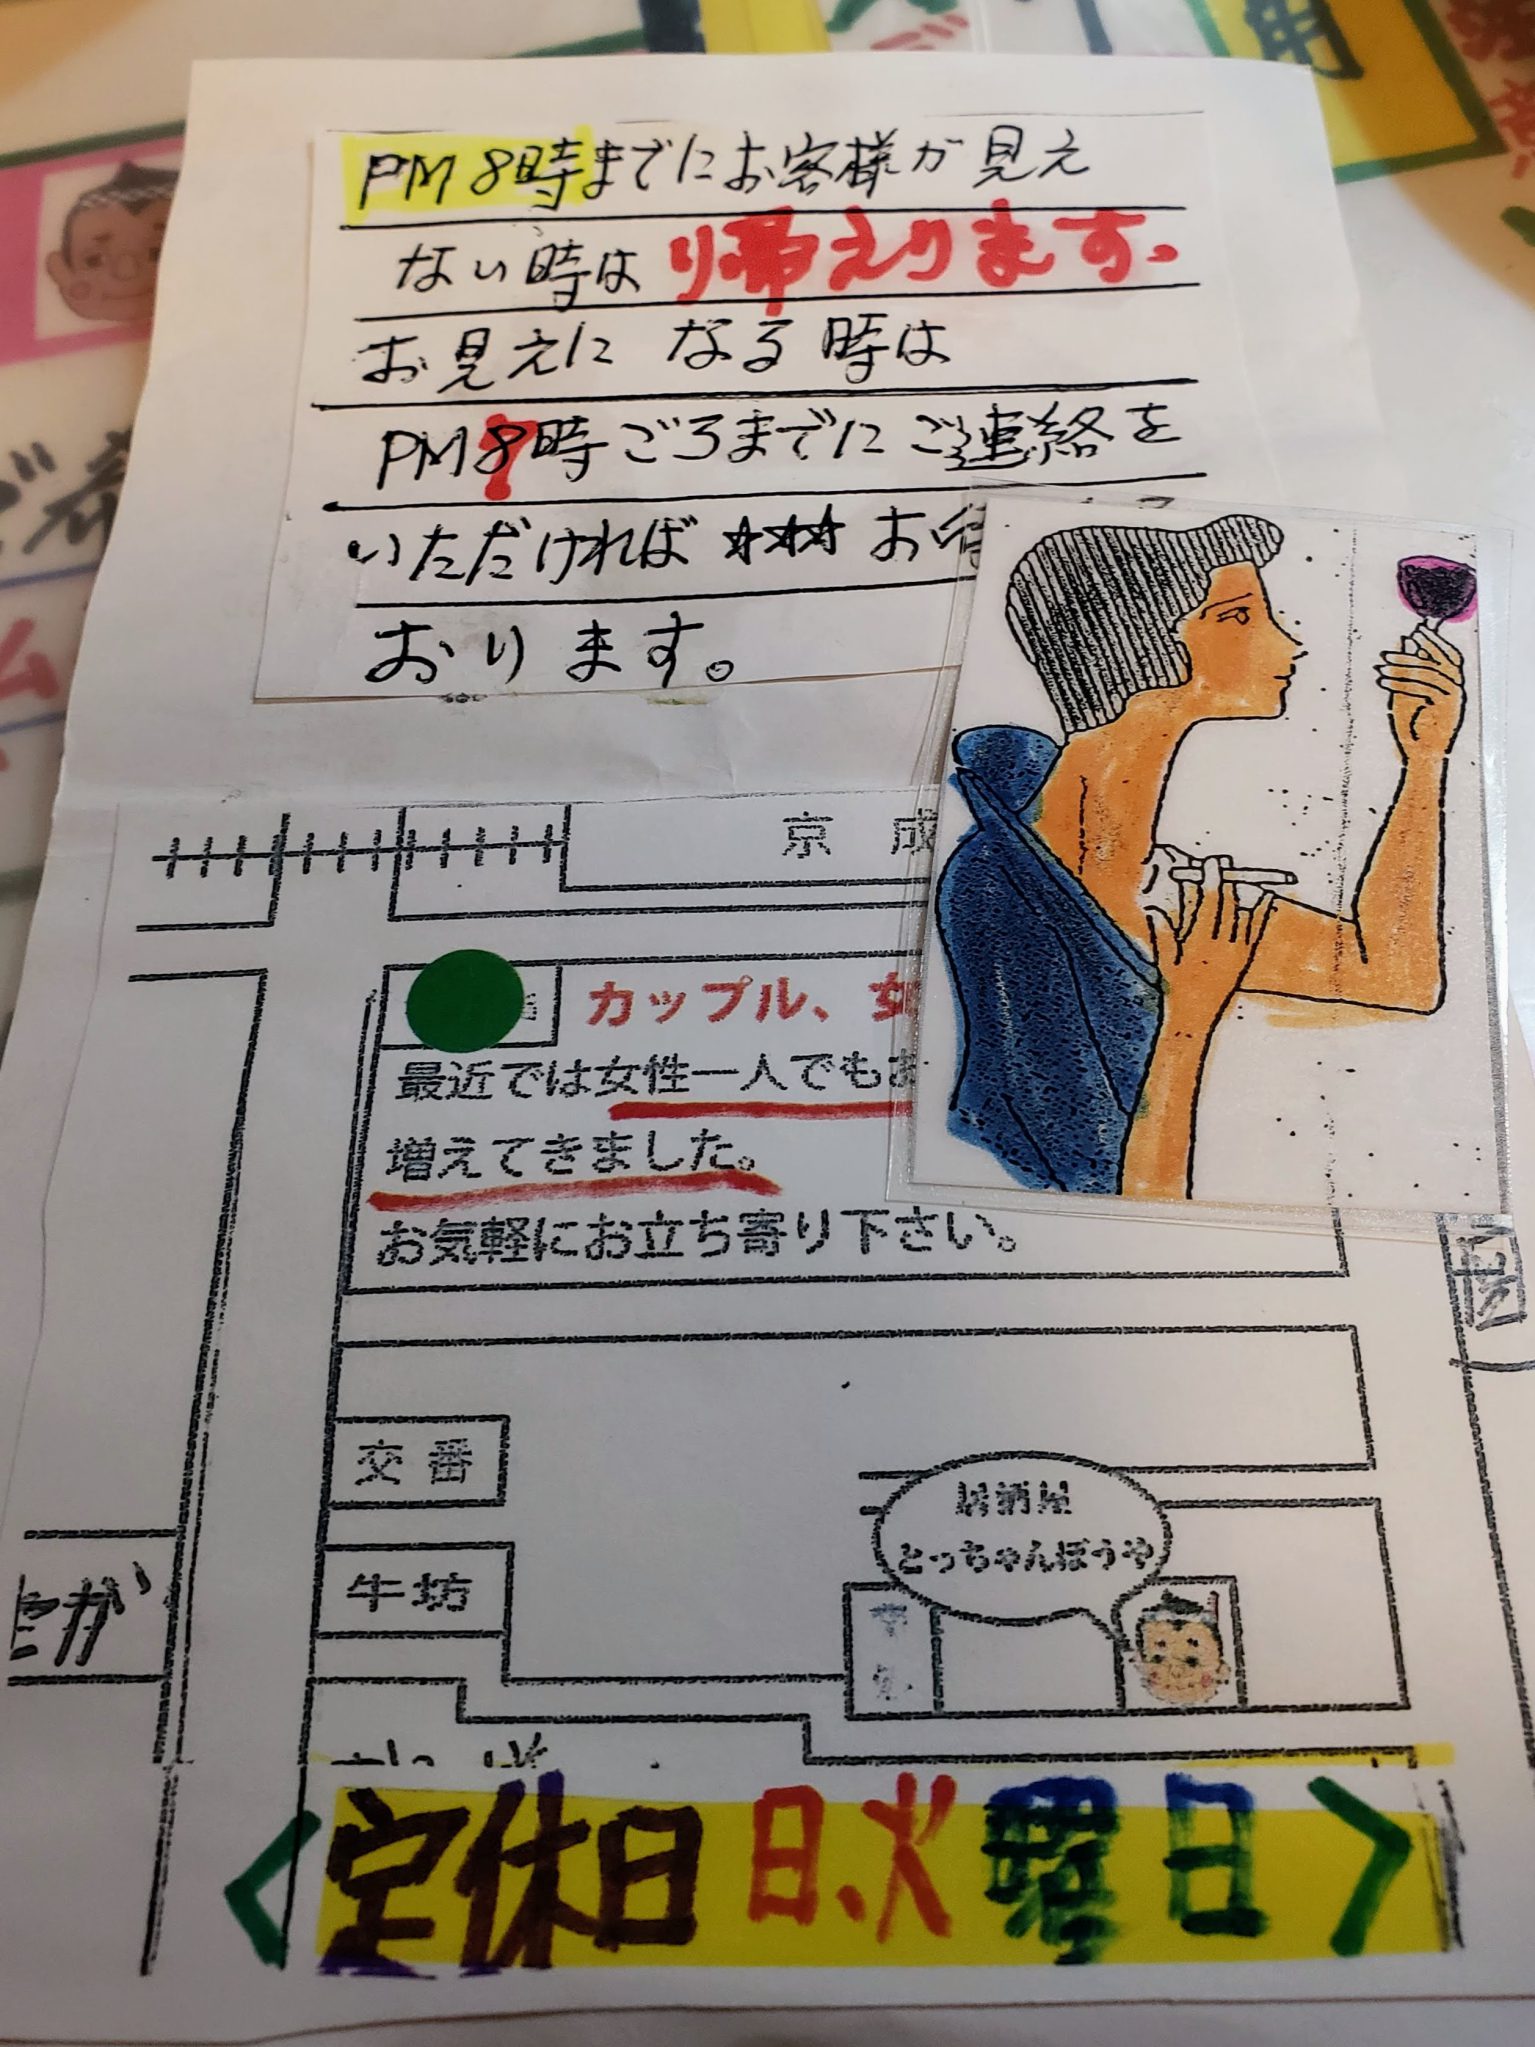 PM 8時までにお客様が見え
ない時は帰えります、
お見えに なる時は
PM8時ごろまでにご連絡を
いただければ ☆☆☆ お
おります。
京 成
カップル、女
最近では女性一人でもお
増えてきました。
お気軽にお立ち寄り下さい。
交 番
牛坊
居酒屋
とっちゃんぼうや
<定休日 日、火曜日>